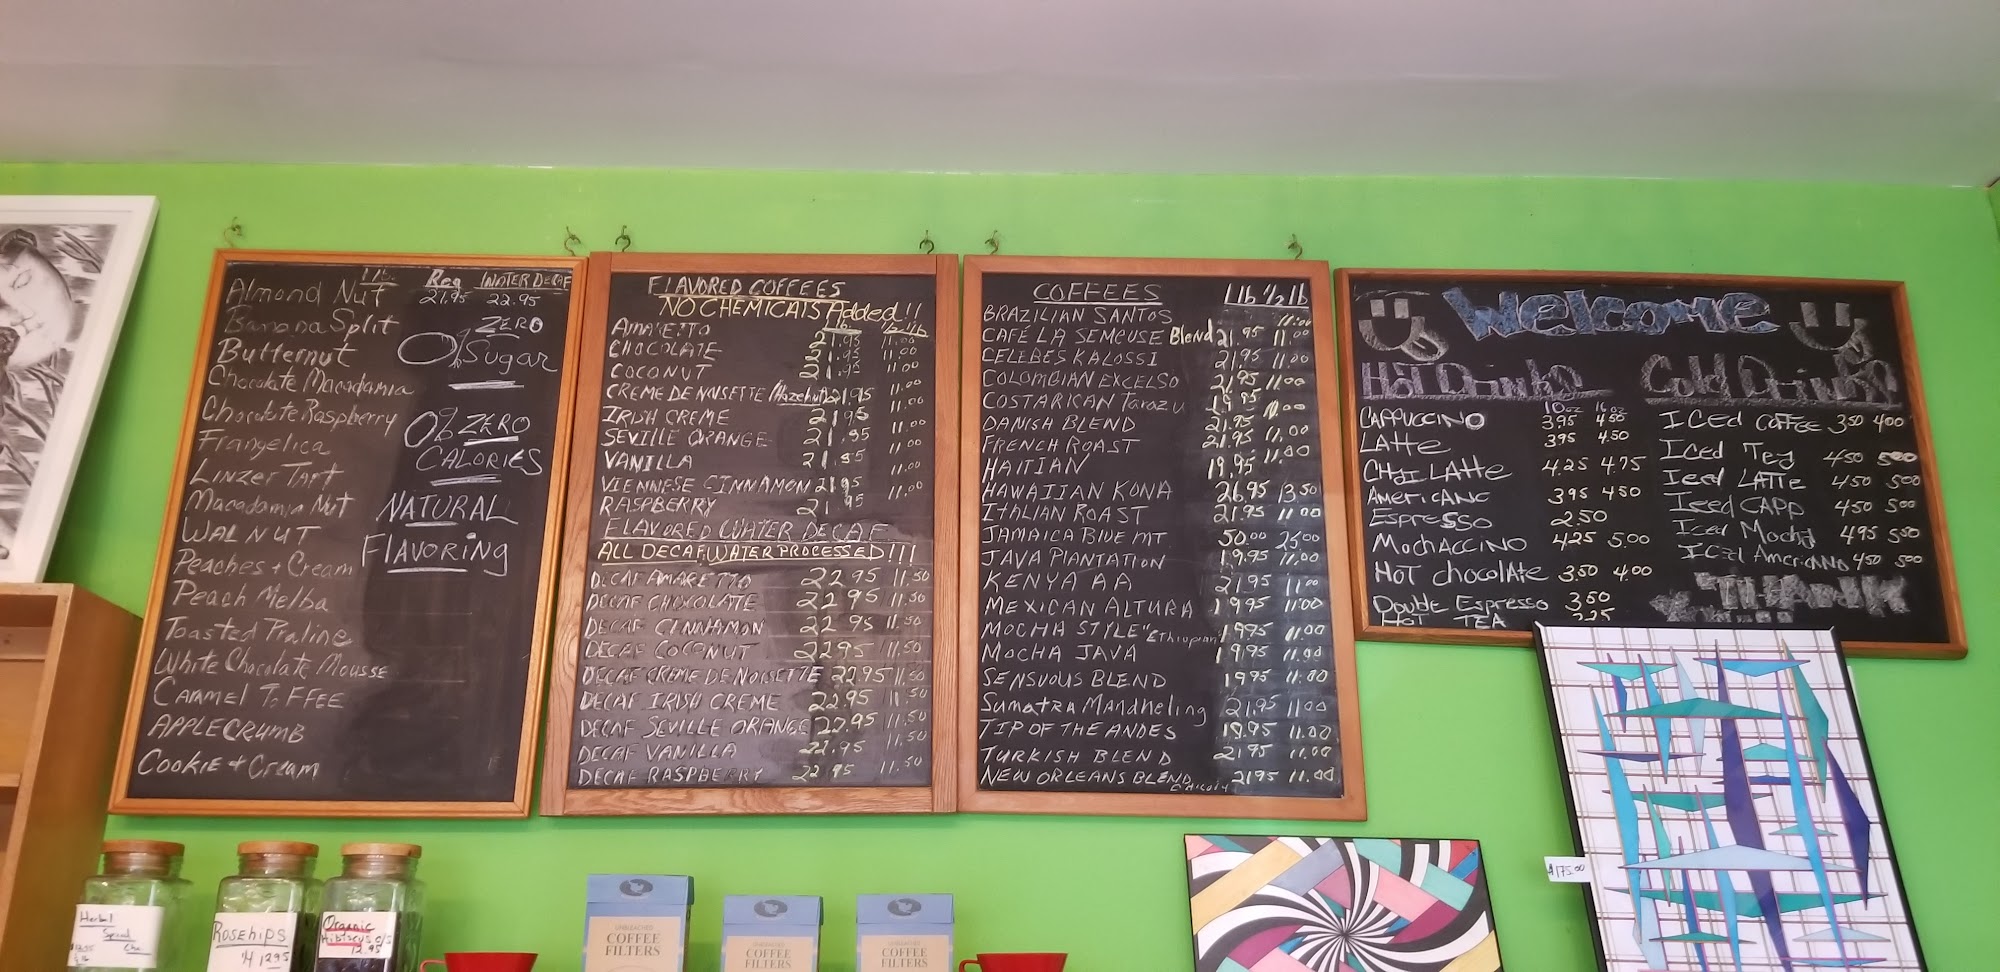 1 lb. Reg WATER DECAF
Almond Nut 21.95 22.95
Banana Split
Butternut
Chocolate Macadamia
Chocolate Raspberry
Frangelica
Linzer Tart
Macadamia Nut
WALNUT
Peaches + Cream
Peach Melba
Toasted Praline
White Chocolate Mousse
CARAMEL TOFFEE
APPLE CRUMB
Cookie + Cream
ZERO
0% Sugar
0% ZERO
CALORIES
NATURAL
FLAVORING
FLAVORED COFFEES
NO CHEMICALS Added!!
1 lb. 1/2 lb
AMARETTO 21.95 11.00
CHOCOLATE 21.95 11.00
COCONUT 21.95 11.00
CREME DE NOISETTE /Hazelnut 21.95 11.00
IRISH CREME 21.95 11.00
SEVILLE ORANGE 21.95 11.00
VANILLA 21.95 11.00
VIENNESE CINNAMON 21.95 11.00
RASPBERRY 21.95
FLAVORED WATER DECAF
ALL DECAF WATER PROCESSED!!!
DECAF AMARETTO 22.95 11.50
DECAF CHOCOLATE 22.95 11.50
DECAF CINNAMON 22.95 11.50
DECAF COCONUT 22.95 11.50
DECAF CREME DE NOISETTE 22.95 11.50
DECAF IRISH CREME 22.95 11.50
DECAF SEVILLE ORANGE 22.95 11.50
DECAF VANILLA 22.95 11.50
DECAF RASPBERRY 22.95 11.50
COFFEES 1 lb 1/2 lb
BRAZILIAN SANTOS 11.00
CAFÉ LA SEMEUSE Blend 21.95 11.00
CELEBES KALOSSI 21.95 11.00
COLOMBIAN EXCELSO 21.95 11.00
COSTARICAN Tarazu 19.95 11.00
DANISH BLEND 21.95 11.00
FRENCH ROAST 21.95 11.00
HAITIAN 19.95
HAWAIIAN KONA 26.95 13.50
ITALIAN ROAST 21.95 11.00
JAMAICA BLUE MT 50.00 25.00
JAVA PLANTATION 19.95 11.00
KENYA AA 21.95 11.00
MEXICAN ALTURA 19.95 11.00
MOCHA STYLE "Ethiopian" 19.95 11.00
MOCHA JAVA 19.95 11.00
SENSUOUS BLEND 19.95 11.00
Sumatra Mandheling 21.95 11.00
TIP OF THE ANDES 19.95 11.00
TURKISH BLEND 21.95 11.00
NEW ORLEANS BLEND 21.95 11.00
Chicory
Welcome
Hot Drinks
10oz 16oz
CAPPUCCINO 3.95 4.50
LATTE 3.95 4.50
CHAI LATTE 4.25 4.75
AMERICANO 3.95 4.50
Espresso 2.50
MOCHACCINO 4.25 5.00
HOT chocolATE 3.50 4.00
Double Espresso 3.50
HOT TEA 2.25
Cold Drinks
ICed COFFEE 3.50 4.00
Iced Tea 4.50 5.00
Iced LATTE 4.50 5.00
Iced CAPP 4.50 5.00
Iced Mocha 4.95 5.50
ICed AmericANO 4.50 5.00
THANK
$175.00
Herbal
Rosehips
1295
ORGANIC
Hibiscus c/s
12.95
UNBLEACHED
COFFEE
FILTERS
UNBLEACHED
COFFEE
FILTERS
UNBLEACHED
COFFEE
FILTERS